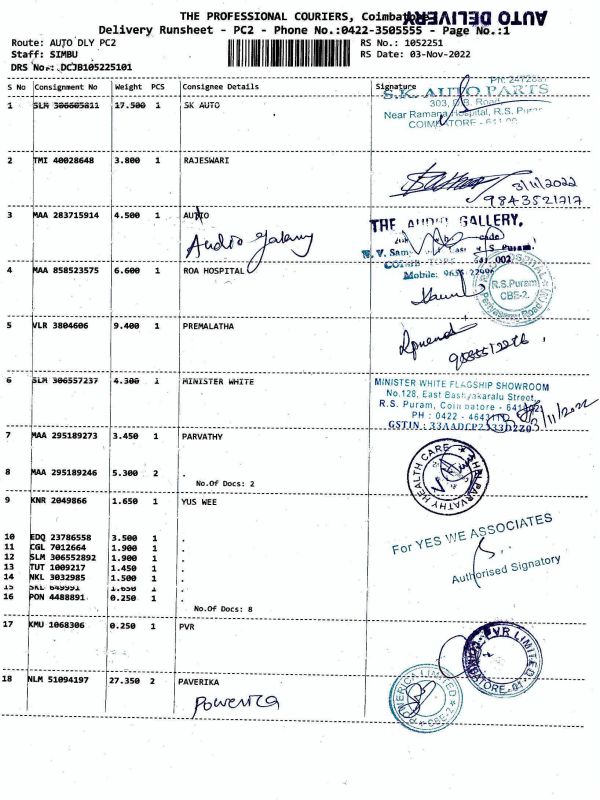 THE PROFESSIONAL COURIERS, Coimbatore
AUTO DELIVERY
Delivery Runsheet - PC2 - Phone No.:0422-3505555 - Page No.:1
Route: AUTO DLY PC2
RS No.: 1052251
Staff: SIMBU
RS Date: 03-Nov-2022
DRS No.: DCJB105225101
S No Consignment No Weight PCS Consignee Details Signature
1 SLM 306605811 17.500 1 SK AUTO
S.K. AUTO PARTS
303, Road
Near Ramana Hospital, R.S. Puram
COIMBATORE -
2 TMI 40028648 3.800 1 RAJESWARI
3/11/2022
9843521717
3 MAA 283715914 4.500 1 AUTIO
Audio galary
THE AUDIO GALLERY.
S Puram.
Mobile:
4 MAA 858523575 6.600 1 ROA HOSPITAL
R.S.Puram
CBE-2.
5 VLR 3804606 9.400 1 PREMALATHA
6 SLM 306557237 4.300 1 MINISTER WHITE
MINISTER WHITE FLAGSHIP SHOWROOM
No.128, East Bashyakaralu Street,
R.S. Puram, Coimbatore - 641002
PH : 0422 -
GSTIN :
3/11/2022
7 MAA 295189273 3.450 1 PARVATHY
8 MAA 295189246 5.300 2 .
No.Of Docs: 2
SHRI PARVATHY HEALTH CARE
9 KNR 2049866 1.650 1 YUS WEE
10 EDQ 23786558 3.500 1 .
11 CGL 7012664 1.900 1 .
12 SLM 306552892 1.900 1 .
13 TUT 1009217 1.450 1 .
14 NKL 3032985 1.500 1 .
15 SKL 649991 1.650 1 .
16 PON 4488891 0.250 1 .
No.Of Docs: 8
For YES WE ASSOCIATES
Authorised Signatory
17 KMU 1068306 0.250 1 PVR
PVR LIMITED
COIMBATORE
18 NLM 51094197 27.350 2 PAVERIKA
Powerica
POWERICA LIMITED
CBE-2